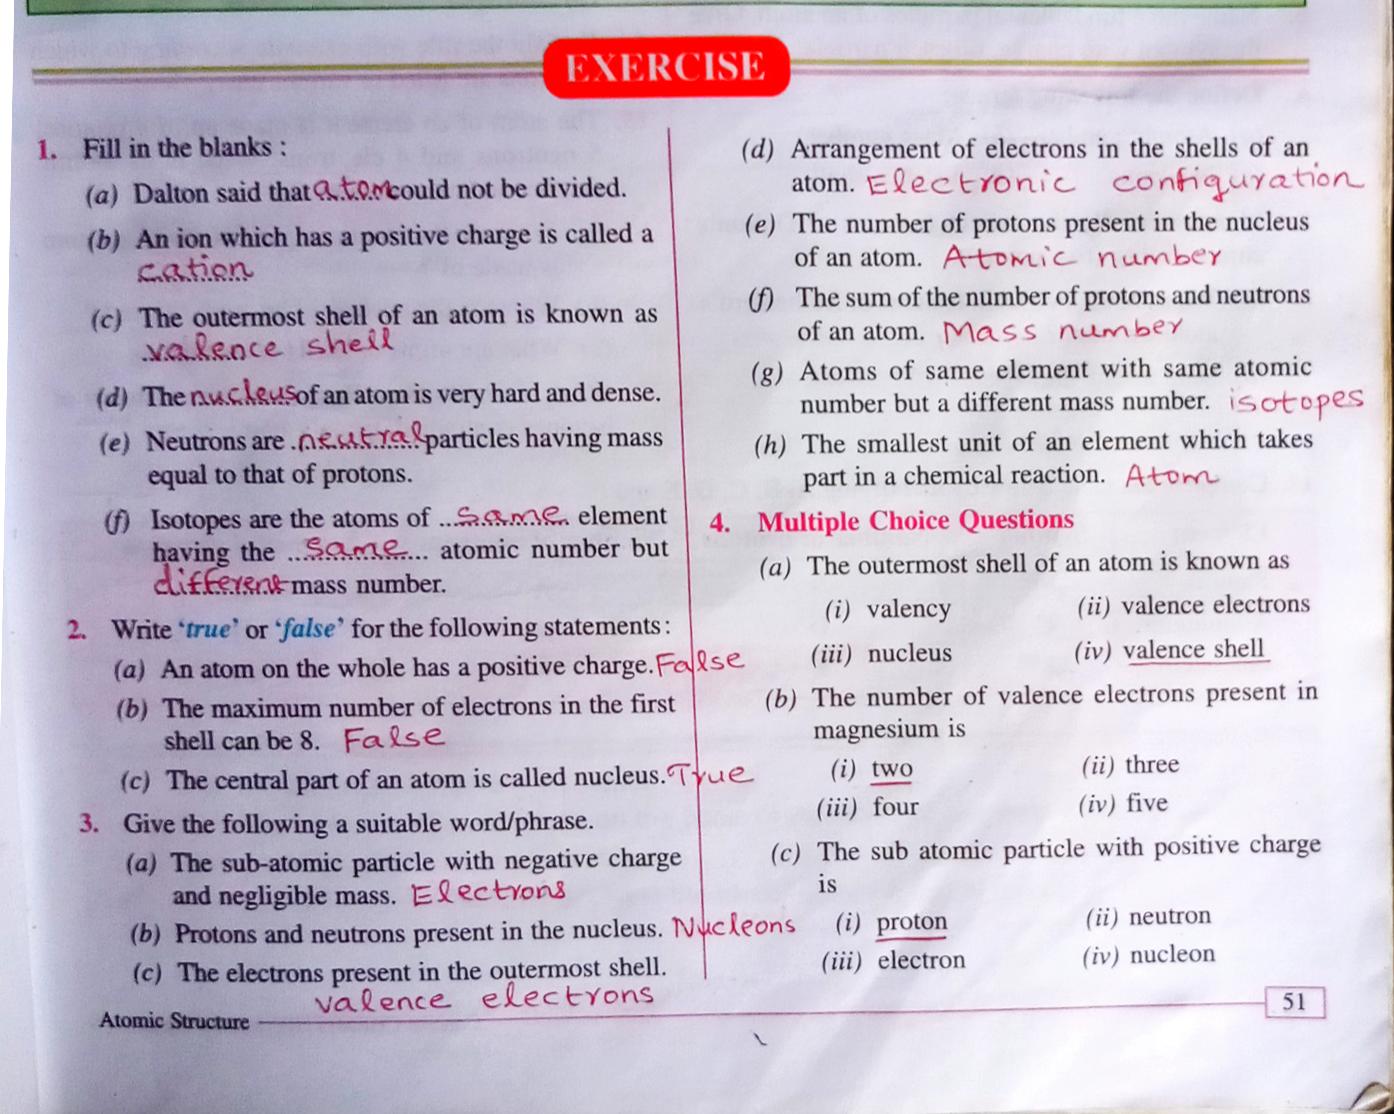 EXERCISE
1. Fill in the blanks :
(a) Dalton said that atom could not be divided.
(b) An ion which has a positive charge is called a
cation
(c) The outermost shell of an atom is known as
valence shell
(d) The nucleus of an atom is very hard and dense.
(e) Neutrons are neutral particles having mass
equal to that of protons.
(f) Isotopes are the atoms of ...same... element
having the ...same... atomic number but
different mass number.
2. Write ‘true’ or ‘false’ for the following statements :
(a) An atom on the whole has a positive charge. False
(b) The maximum number of electrons in the first
shell can be 8. False
(c) The central part of an atom is called nucleus. True
3. Give the following a suitable word/phrase.
(a) The sub-atomic particle with negative charge
and negligible mass. Electrons
(b) Protons and neutrons present in the nucleus. Nucleons
(c) The electrons present in the outermost shell.
valence electrons
(d) Arrangement of electrons in the shells of an
atom. Electronic configuration
(e) The number of protons present in the nucleus
of an atom. Atomic number
(f) The sum of the number of protons and neutrons
of an atom. Mass number
(g) Atoms of same element with same atomic
number but a different mass number. isotopes
(h) The smallest unit of an element which takes
part in a chemical reaction. Atom
4. Multiple Choice Questions
(a) The outermost shell of an atom is known as
(i) valency (ii) valence electrons
(iii) nucleus (iv) valence shell
(b) The number of valence electrons present in
magnesium is
(i) two (ii) three
(iii) four (iv) five
(c) The sub atomic particle with positive charge
is
(i) proton (ii) neutron
(iii) electron (iv) nucleon
Atomic Structure 51